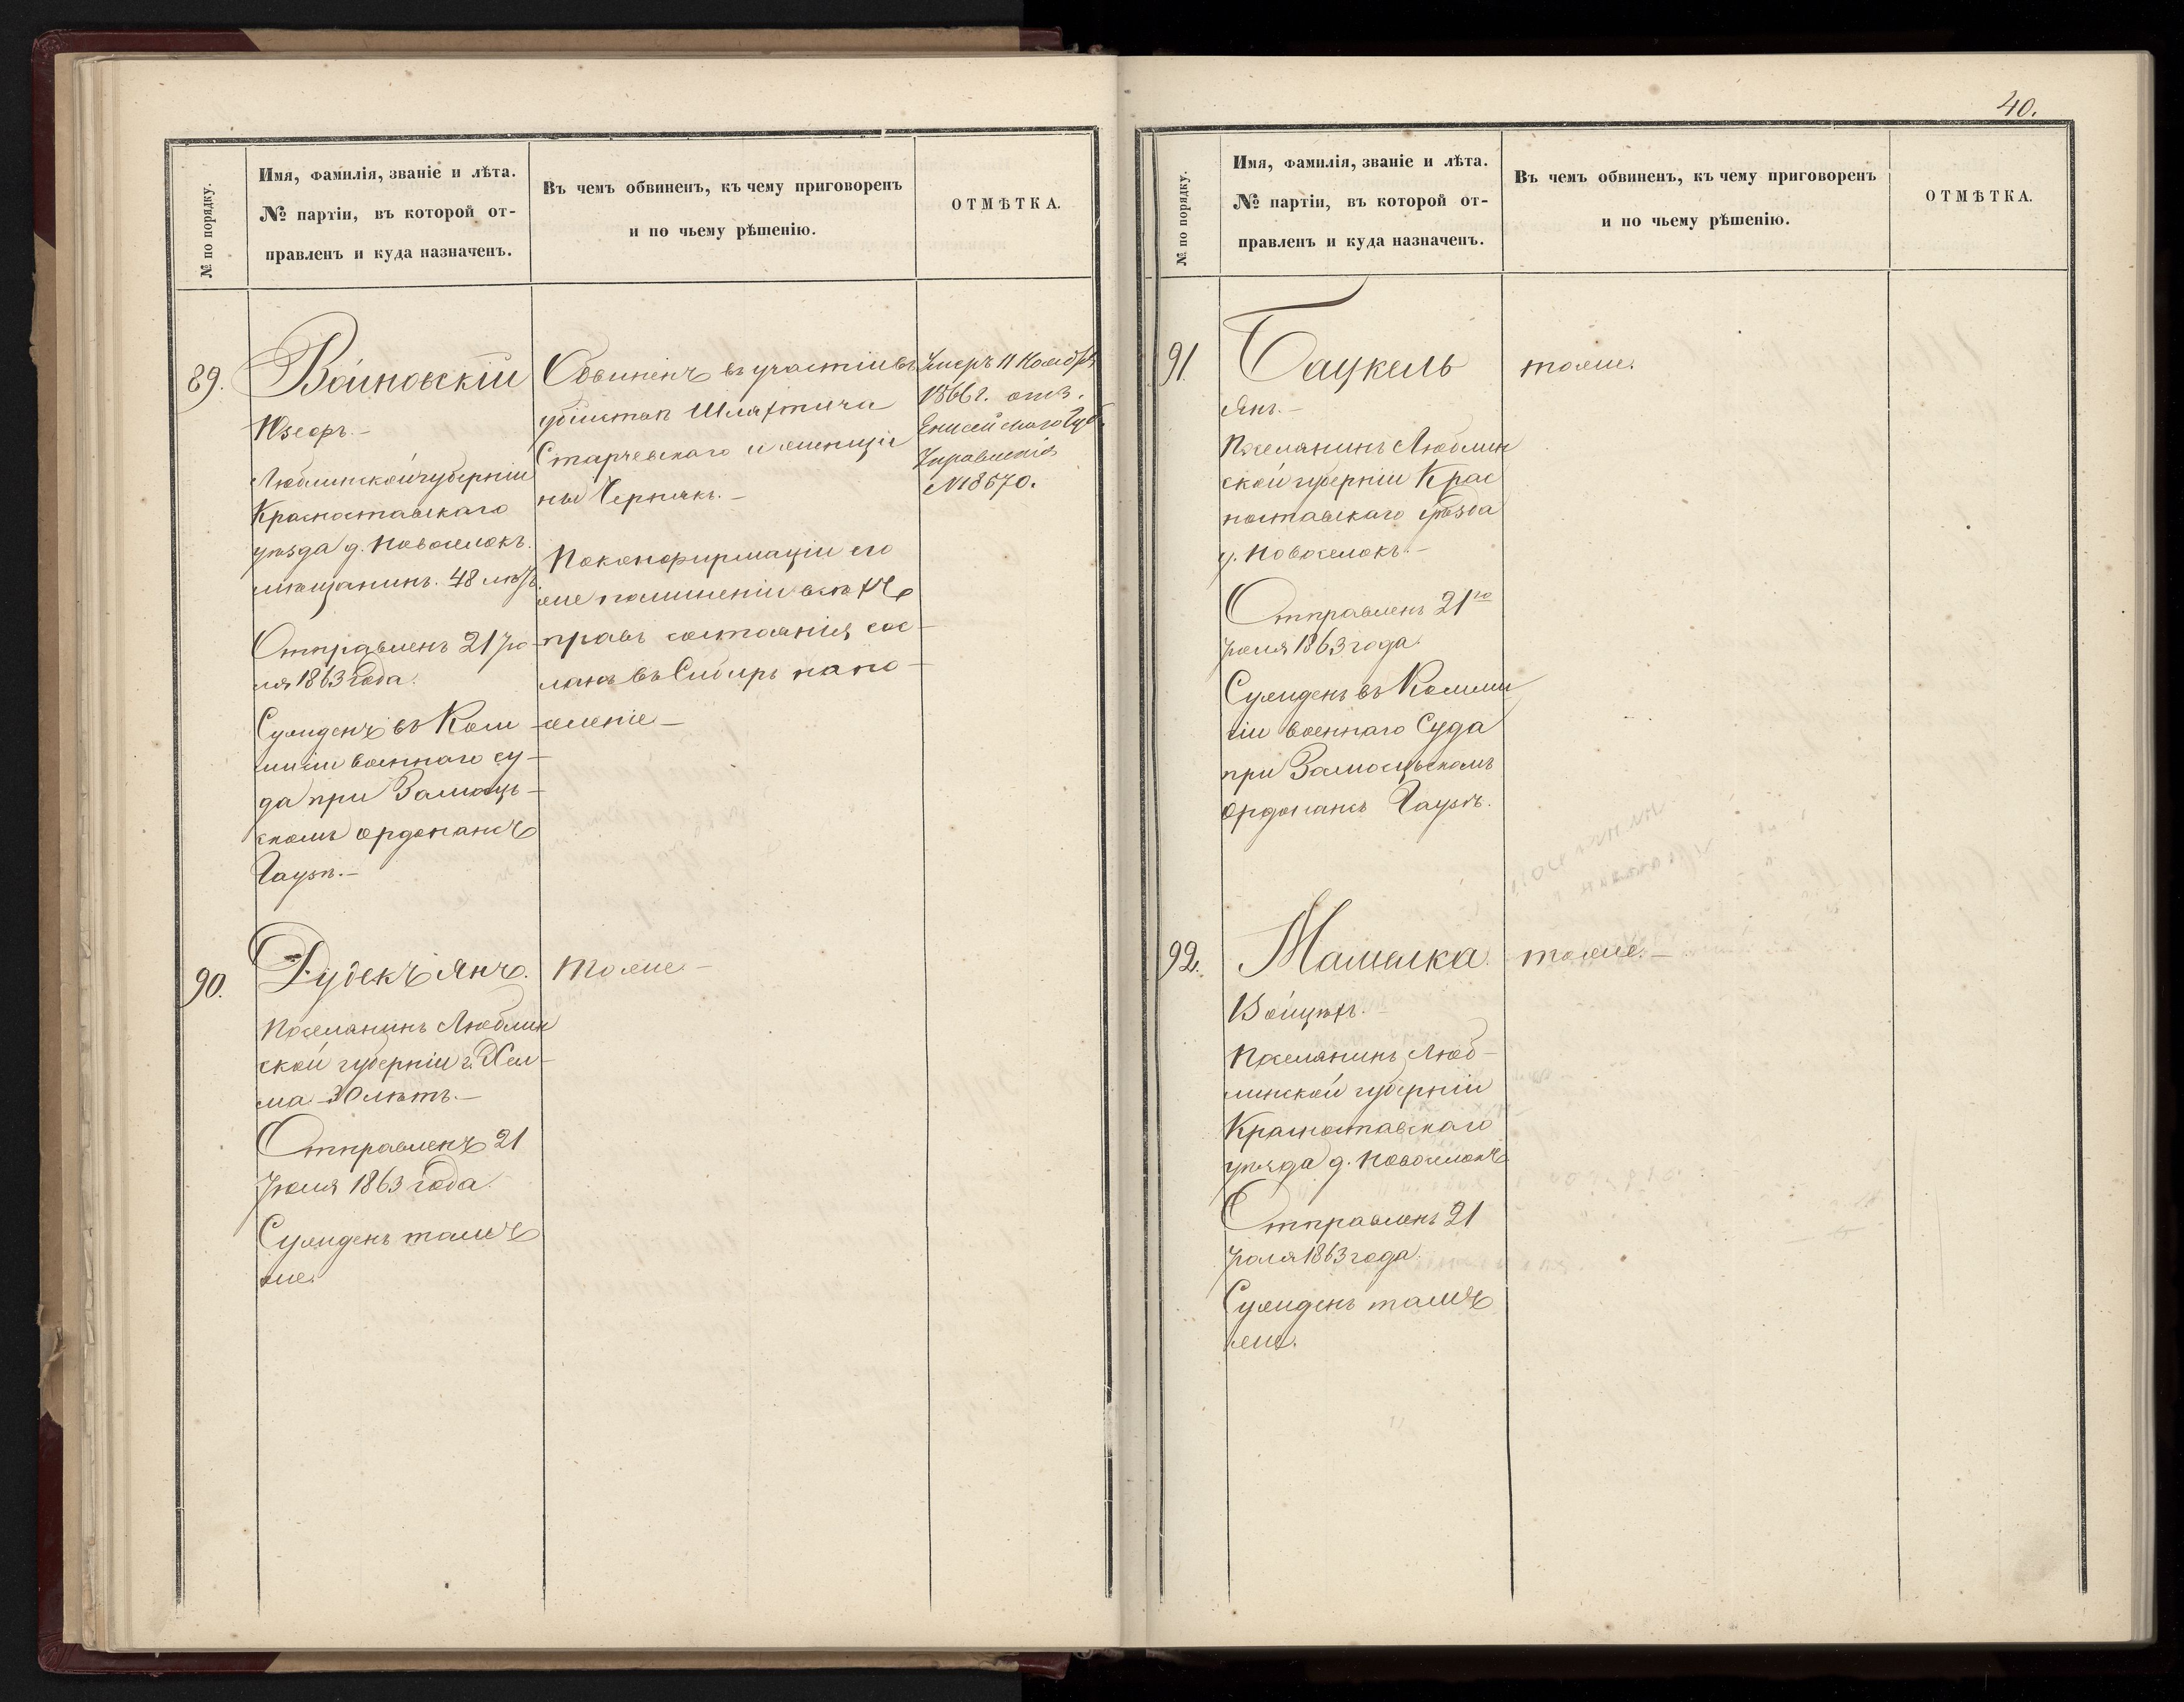 № по порядку.
Имя, фамилія, званіе и лѣта.
№ партіи, въ которой от-
правленъ и куда назначенъ.
Въ чемъ обвиненъ, къ чему приговоренъ
и по чьему рѣшенію.
ОТМѢТКА.
89.
Войновскій
Юзефъ.-
Люблинской губерніи
Красноставскаго
уѣзда д. Новоселокъ.
мѣщанинъ. 48 лѣтъ
Отправленъ 21 Iю-
ля 1863 года.
Сужденъ въ Ком-
мисіи военнаго су-
да при Замосць-
скомъ ордонансъ
Гаузѣ.-
Обвиненъ въ участіи въ
убійствѣ Шляхтича
Старчевскаго и женщи
ны Черняк.-
По конфирмаціи его
же по лишеніи всѣхъ
правъ состоянія, сос-
ланъ въ Сибирь на по-
селеніе-
Умеръ 11 Ноября
1866 г. отз.
Енисейскаго Губ.
Управленія
№ 18670.
90.
Дудекъ Янъ.
Поселянинъ Люблин
ской губерніи г. Хел-
ма. 30 лѣтъ.-
Отправленъ 21
Iюля 1863 года.
Сужденъ тамъ
же.
тоже.-
40.
№ по порядку.
Имя, фамилія, званіе и лѣта.
№ партіи, въ которой от-
правленъ и куда назначенъ.
Въ чемъ обвиненъ, къ чему приговоренъ
и по чьему рѣшенію.
ОТМѢТКА.
91.
Бацкель
Янъ.-
Поселянинъ Люблин
ской губерніи Крас
ноставскаго уѣзда
д. Новоселокъ.-
Отправленъ 21го
Iюля 1863 года.
Сужденъ въ Комми
сіи военнаго Суда
при Замосцьскомъ
Ордонансъ Гаузѣ.
тоже.
92.
Мамелка.
Войцѣхъ.-
Поселянинъ Люб-
линской губерніи
Красноставскаго
уѣзда д. Новоселокъ
Отправленъ 21
Iюля 1863 года.
Сужденъ тамъ
же.
тоже.-